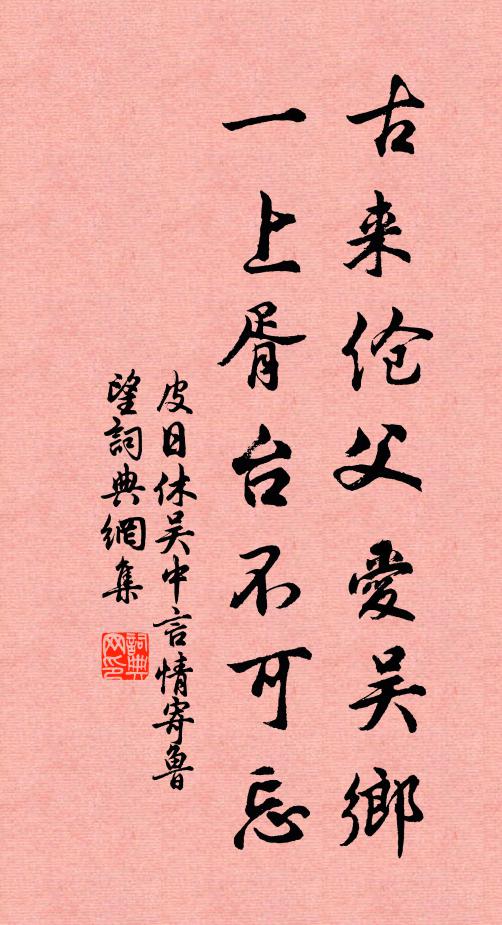 古来伧父爱吴鄉
一上胥台不可忘
皮日休吴中言情寄魯
望詞典網集
詞典
网印